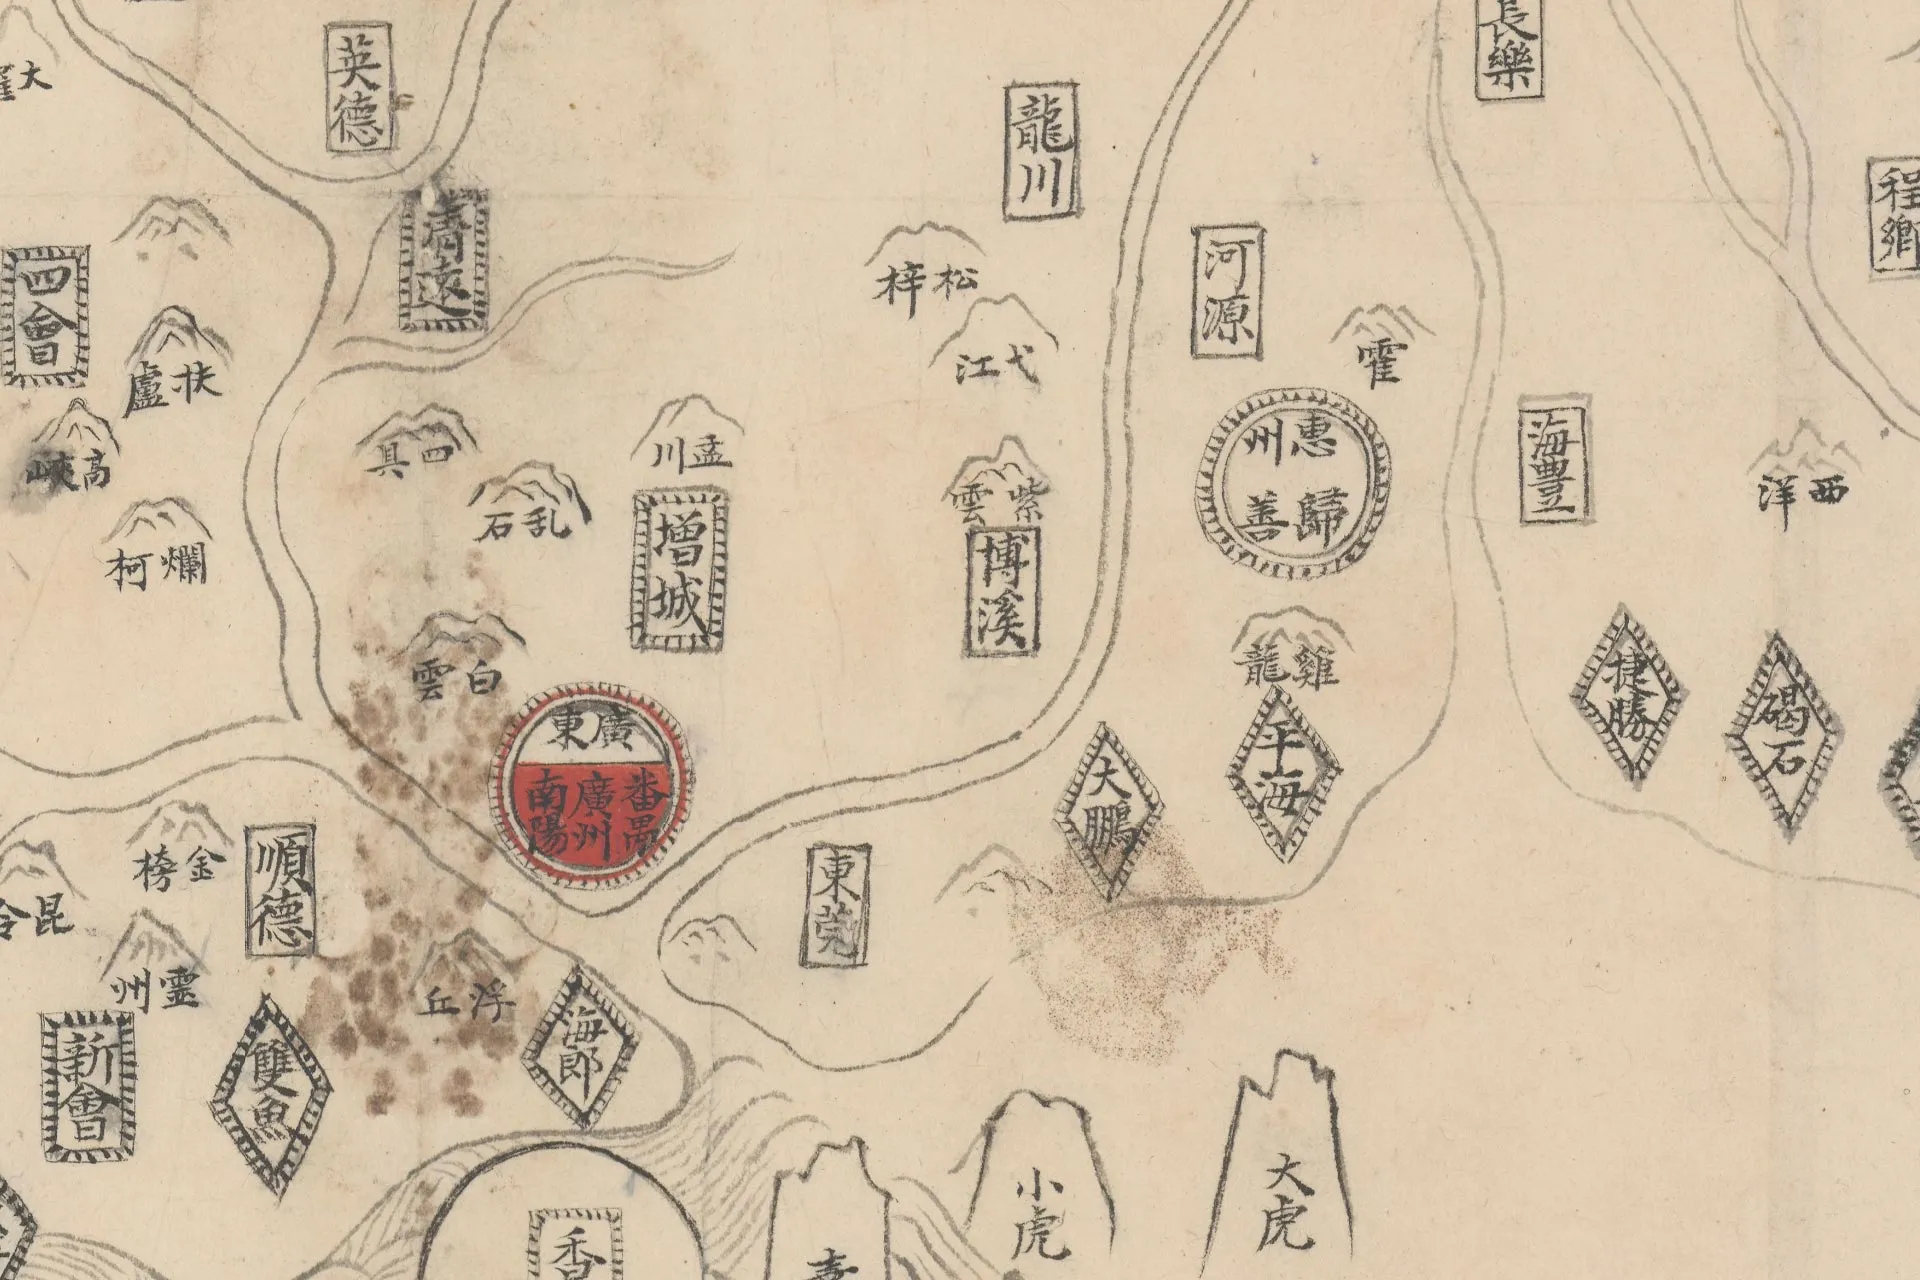 英德
長樂
龍川
程鄉
清遠
河源
四會
松梓
弋江
霍
扶盧
高峽
四具
孟川
乱石
爛柯
增城
紫雲
博溪
惠州
歸善
海豊
西洋
白雲
雞龍
捷勝
碣石
平海
大鵬
廣東
番禺
廣州
南陽
順德
金榜
東莞
靈州
浮丘
海郎
新會
雙魚
小虎
大虎